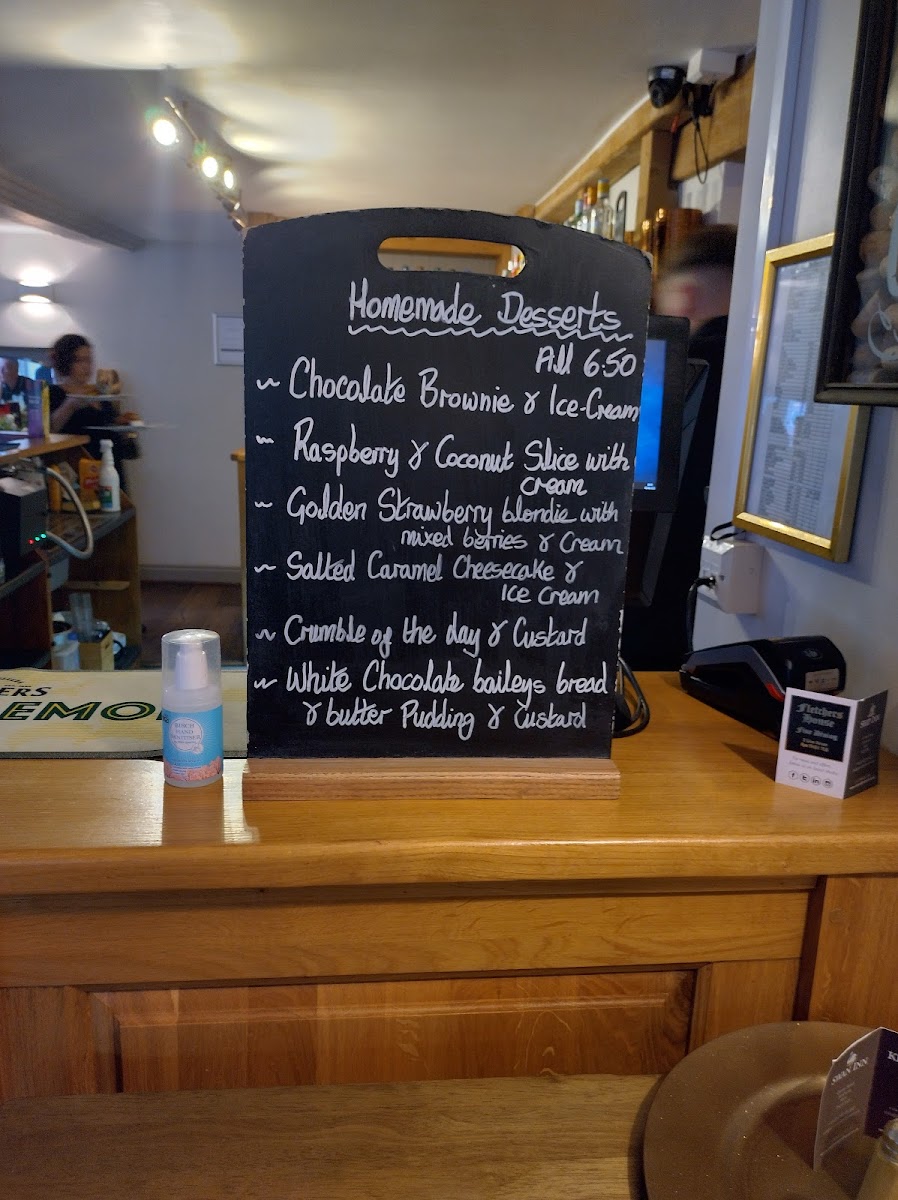 Homemade Desserts
All 6.50
~ Chocolate Brownie & Ice-Cream
~ Raspberry & Coconut Slice with
cream
~ Golden Strawberry blondie with
mixed berries & Cream
~ Salted Caramel Cheesecake &
Ice Cream
~ Crumble of the day & Custard
~ White Chocolate baileys bread
& butter Pudding & Custard
ERS
EMO
HAND
Fletchers
House
Fine Dining
SWAN INN